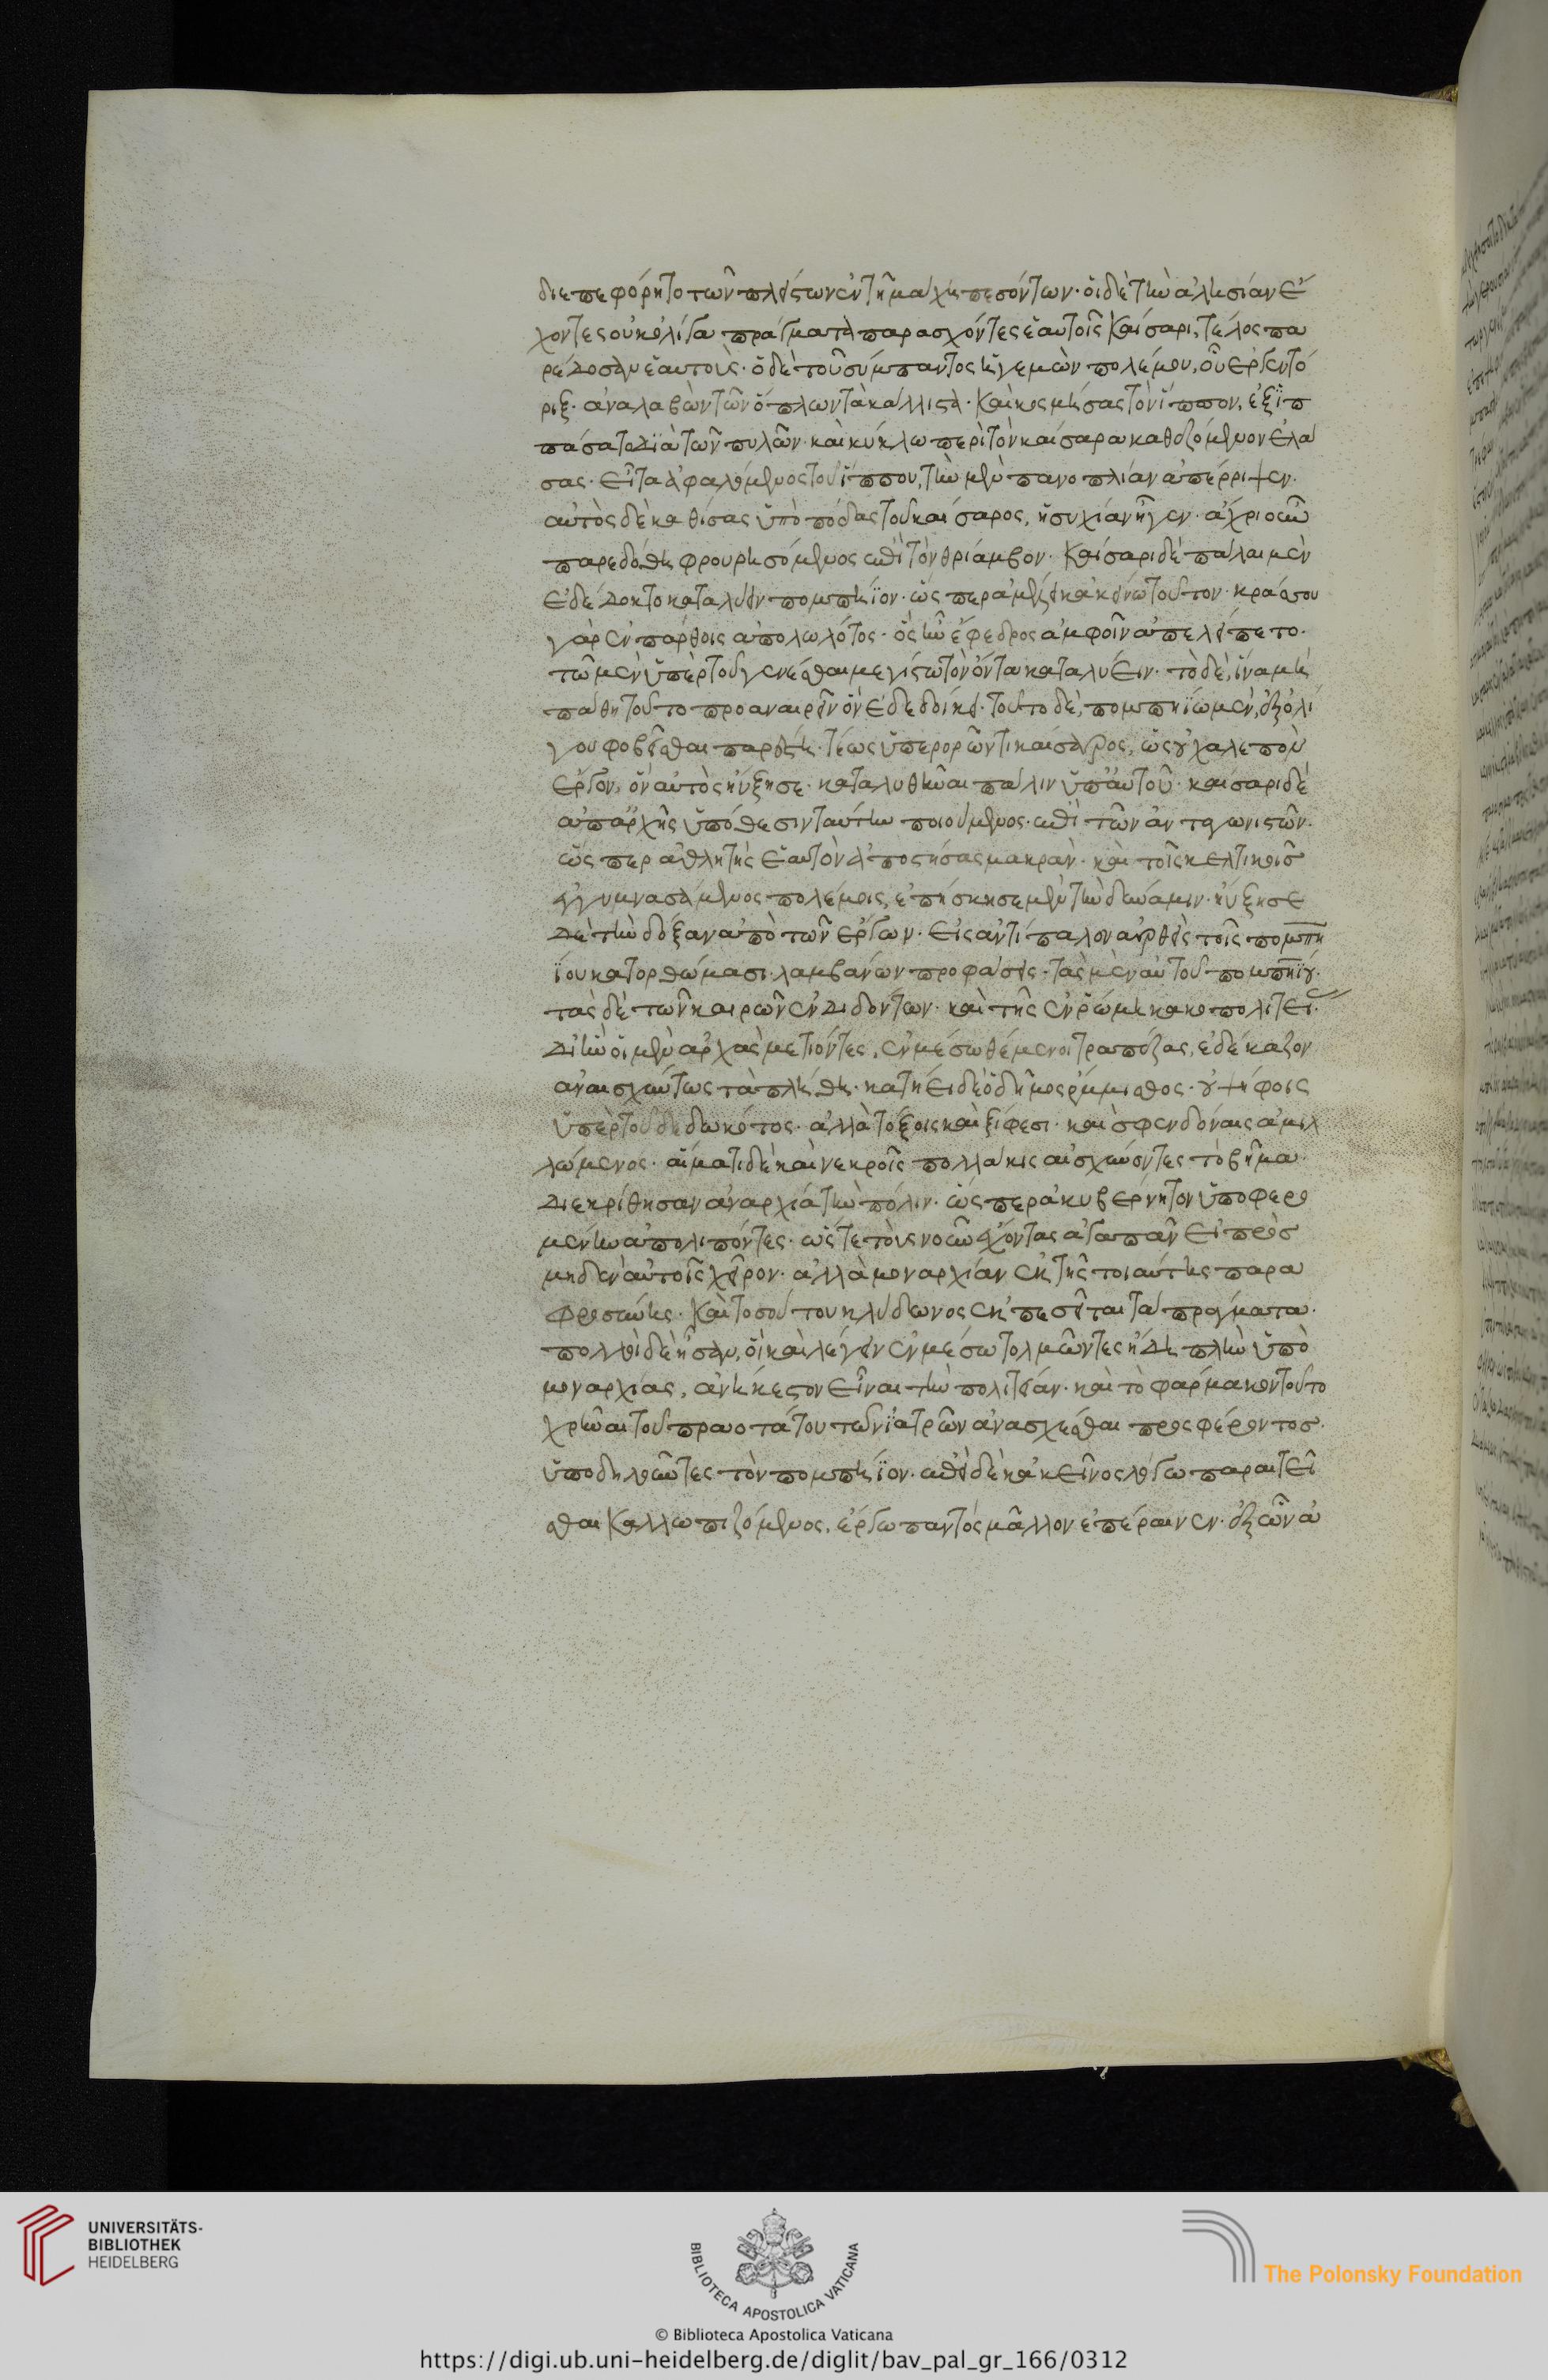 διεπεφόρητο τῶν πλείστων ἐν τῆ μάχη πεσόντων· οἱ δὲ τὴν ἀλησίαν ἔ
χοντες οὐκ ὀλίγα πράγματα παρασχόντες ἑαυτοῖς καὶ καίσαρι, τέλος πα
ρέδοσαν ἑαυτούς· ὁ δὲ τοῦ σύμπαντος ἡγεμὼν πολέμου, οὐεργεντό
ριξ· ἀναλαβὼν τῶν ὅπλων τὰ κάλλιστα· καὶ κοσμήσας τὸν ἵππον, ἐξιπ
πάσατο διὰ τῶν πυλῶν· καὶ κύκλω περὶ τὸν καίσαρα καθεζόμενον ἐλά
σας· εἶτα ἀφαλόμενος τοῦ ἵππου, τὴν μὲν πανοπλίαν ἀπέρριψεν·
αὐτὸς δὲ καθίσας ὑπὸ πόδας τοῦ καίσαρος, ἡσυχίαν ἦγεν· ἄχρι οὗ
παρεδόθη φρουρησόμενος ἐπὶ τὸν θρίαμβον· καίσαρι δὲ πάλαι μὲν
ἐδέδοκτο καταλύειν πομπήϊον· ὥσπερ ἀμέλει κἀκείνω τοῦτον· κράσσου
γὰρ ἐν πάρθοις ἀπολωλότος· ὃς ἦν ἔφεδρος ἀμφοῖν ἀπελείπετο·
τῶ μὲν ὑπὲρ τοῦ γενέσθαι μεγίστω τὸν ὄντα καταλύειν· τὸ δὲ, ἵνα μὴ
πάθη τοῦτο προαναιρεῖν ὃν ἐδεδοίκει· τοῦτο δὲ, πομπηΐω μὲν, ἐξ ὀλί
γου φοβεῖσθαι παρέστη· τέως ὑπερορῶντι καίσαρος, ὡς οὐ χαλεπὸν
ἔργον, ὃν αὐτὸς ηὔξησε· καταλυθῆναι πάλιν ὑπ' αὐτοῦ· καίσαρι δὲ
ἀπ' ἀρχῆς ὑπόθεσιν ταύτην ποιούμενος· ἐπὶ τῶν ἀνταγωνιστῶν·
ὥσπερ ἀθλητὴς ἑαυτὸν ἀποστήσας μακράν· καὶ τοῖς κελτικοῖς
ἐγγυμνασάμενος πολέμοις, ἐπήσκησε μὲν τὴν δύναμιν· ηὔξησε
δὲ τὴν δόξαν ἀπὸ τῶν ἔργων· εἰς ἀντίπαλον ἀρθεὶς τοῖς πομπη
ΐου κατορθώμασι· λαμβάνων προφάσεις· τὰς μὲν αὐτοῦ πομπηΐου·
τὰς δὲ τῶν καιρῶν ἐνδιδόντων· καὶ τῆς ἐν ῥώμη κακοπολιτεί·
δι' ἣν οἱ μὲν ἀρχὰς μετιόντες, ἐν μέσω θέμενοι τραπέζας, ἐδέκαζον
ἀναισχύντως τὰ πλήθη· κατήει δὲ ὁ δῆμος ἔμμισθος· οὐ ψήφοις
ὑπὲρ τοῦ δεδωκότος· ἀλλὰ τόξοις καὶ ξίφεσι· καὶ σφενδόναις ἁμιλ
λώμενος· αἵματι δὲ καὶ νεκροῖς πολλάκις αἰσχύναντες τὸ βῆμα·
διεκρίθησαν ἀναρχία τὴν πόλιν· ὥσπερ ἀκυβέρνητον ὑποφερο
μένην ἀπολιπόντες· ὥστε τοὺς νοῦν ἔχοντας ἀγαπᾶν εἰ πρὸς
μηδὲν αὐτοῖς χεῖρον· ἀλλὰ μοναρχίαν ἐκ τῆς τοιαύτης παρα
φροσύνης· καὶ τοσούτου κλύδωνος ἐκπεσεῖται τὰ πράγματα·
πολλοὶ δὲ ἦσαν, οἱ καὶ λέγειν ἐν μέσω τολμῶντες ἤδη πλὴν ὑπὸ
μοναρχίας, ἀνήκεστον εἶναι τὴν πολιτείαν· καὶ τὸ φάρμακον τοῦτο
χρῆναι τοῦ πραοτάτου τῶν ἰατρῶν ἀνασχέσθαι προσφέροντος·
ὑποδηλοῦντες τὸν πομπήϊον· ἐπεὶ δὲ κἀκεῖνος λόγω παραιτεῖ
σθαι καλλωπιζόμενος, ἔργω παντὸς μᾶλλον ἐπέραινεν· ἐξ ὧν ἀ
UNIVERSITÄTS-
BIBLIOTHEK
HEIDELBERG
BIBLIOTECA APOSTOLICA VATICANA
The Polonsky Foundation
© Biblioteca Apostolica Vaticana
https://digi.ub.uni-heidelberg.de/diglit/bav_pal_gr_166/0312